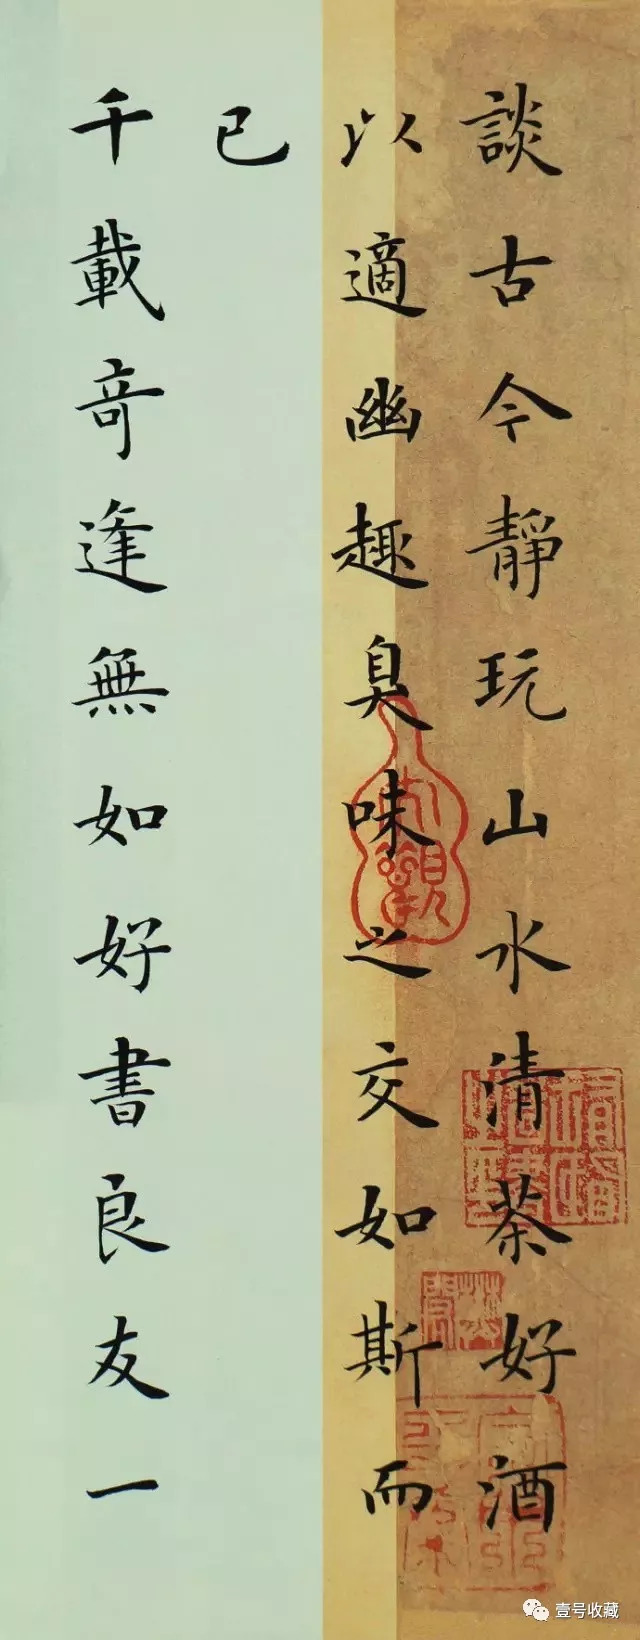 談古今靜玩山水清茶好酒
以適幽趣臭味之交如斯而
已
千載奇逢無如好書良友一
壹号收藏